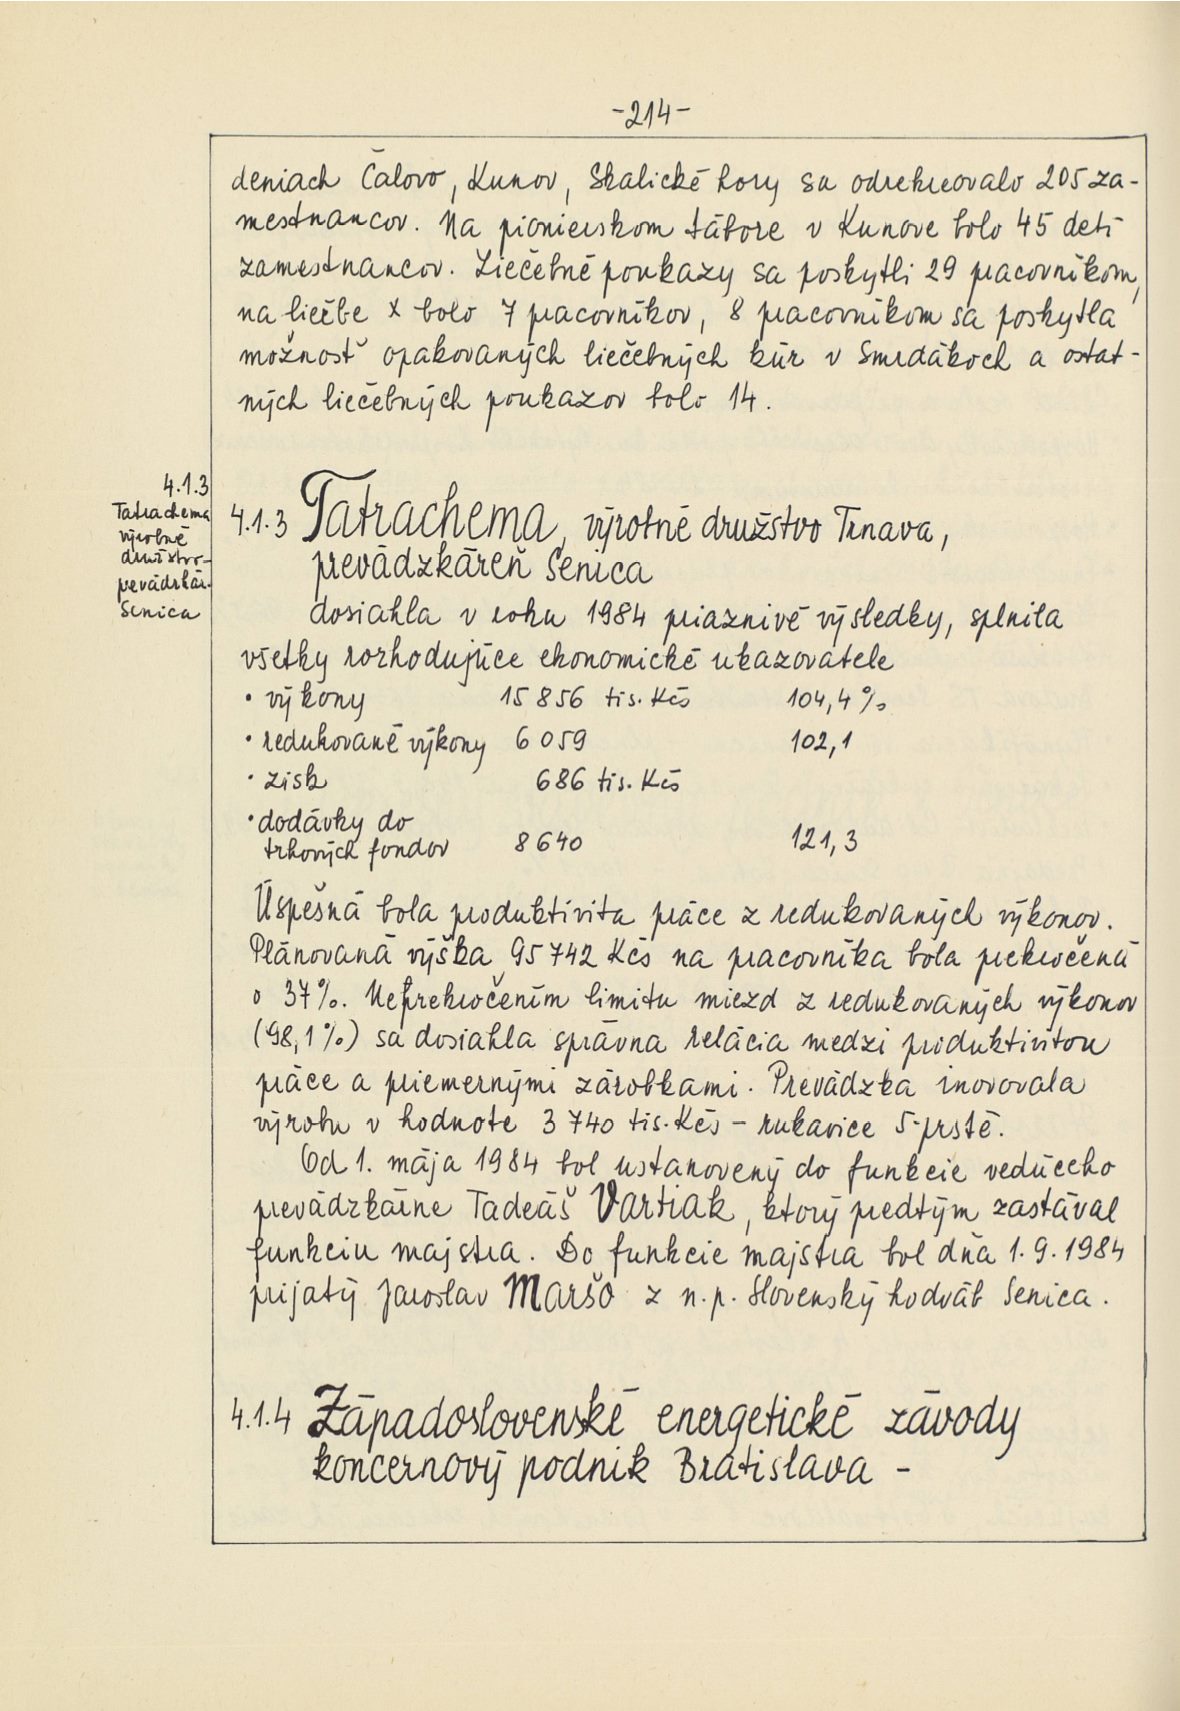 -214-
deniach Čalovo, Kunov, Skalické hory sa odrekreovalo 205 za-
mestnancov. Na pionierskom tábore v Kunove bolo 45 detí
zamestnancov. Liečebné poukazy sa poskytli 29 pracovníkom,
na liečbe x bolo 7 pracovníkov, 8 pracovníkom sa poskytla
možnosť opakovaných liečebných kúr v Smrdákoch a ostat-
ných liečebných poukazov bolo 14.
4.1.3
Tatrachema
výrobné
družstvo-
prevádzkár.
Senica
4.1.3 Tatrachema, výrobné družstvo Trnava,
prevádzkáreň Senica
dosiahla v roku 1984 priaznivé výsledky, splnila
všetky rozhodujúce ekonomické ukazovatele
• výkony 15 856 tis. Kčs 104,4 %
• redukované výkony 6 059 102,1
• zisk 686 tis. Kčs
• dodávky do
trhových fondov 8 640 121,3
Úspešná bola produktivita práce z redukovaných výkonov.
Plánovaná výška 95 742 Kčs na pracovníka bola prekročená
o 37%. Neprekročením limitu miezd z redukovaných výkonov
(98,1 %) sa dosiahla správna relácia medzi produktivitou
práce a priemernými zárobkami. Prevádzka inovovala
výrobu v hodnote 3 740 tis. Kčs – rukavice 5-prsté.
Od 1. mája 1984 bol ustanovený do funkcie vedúceho
prevádzkárne Tadeáš Vartiak, ktorý predtým zastával
funkciu majstra. Do funkcie majstra bol dňa 1.9.1984
prijatý Jaroslav Maršo z n.p. Slovenský hodváb Senica.
4.1.4 Západoslovenské energetické závody
koncernový podnik Bratislava –